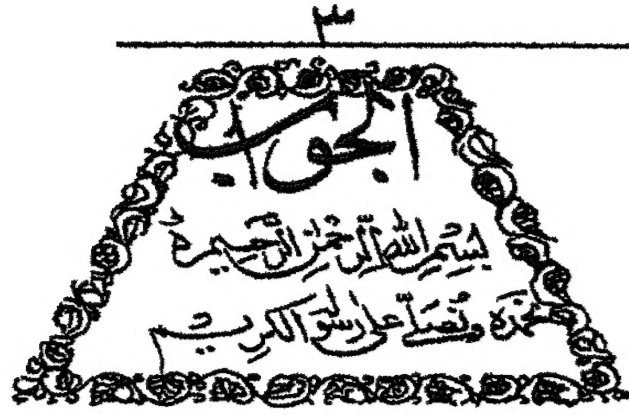 ۳
الجواب
بِسْمِ اللهِ الرَّحْمٰنِ الرَّحِيْمِ ۝
نحمدہ ونصلی علیٰ رسولہ الکریم